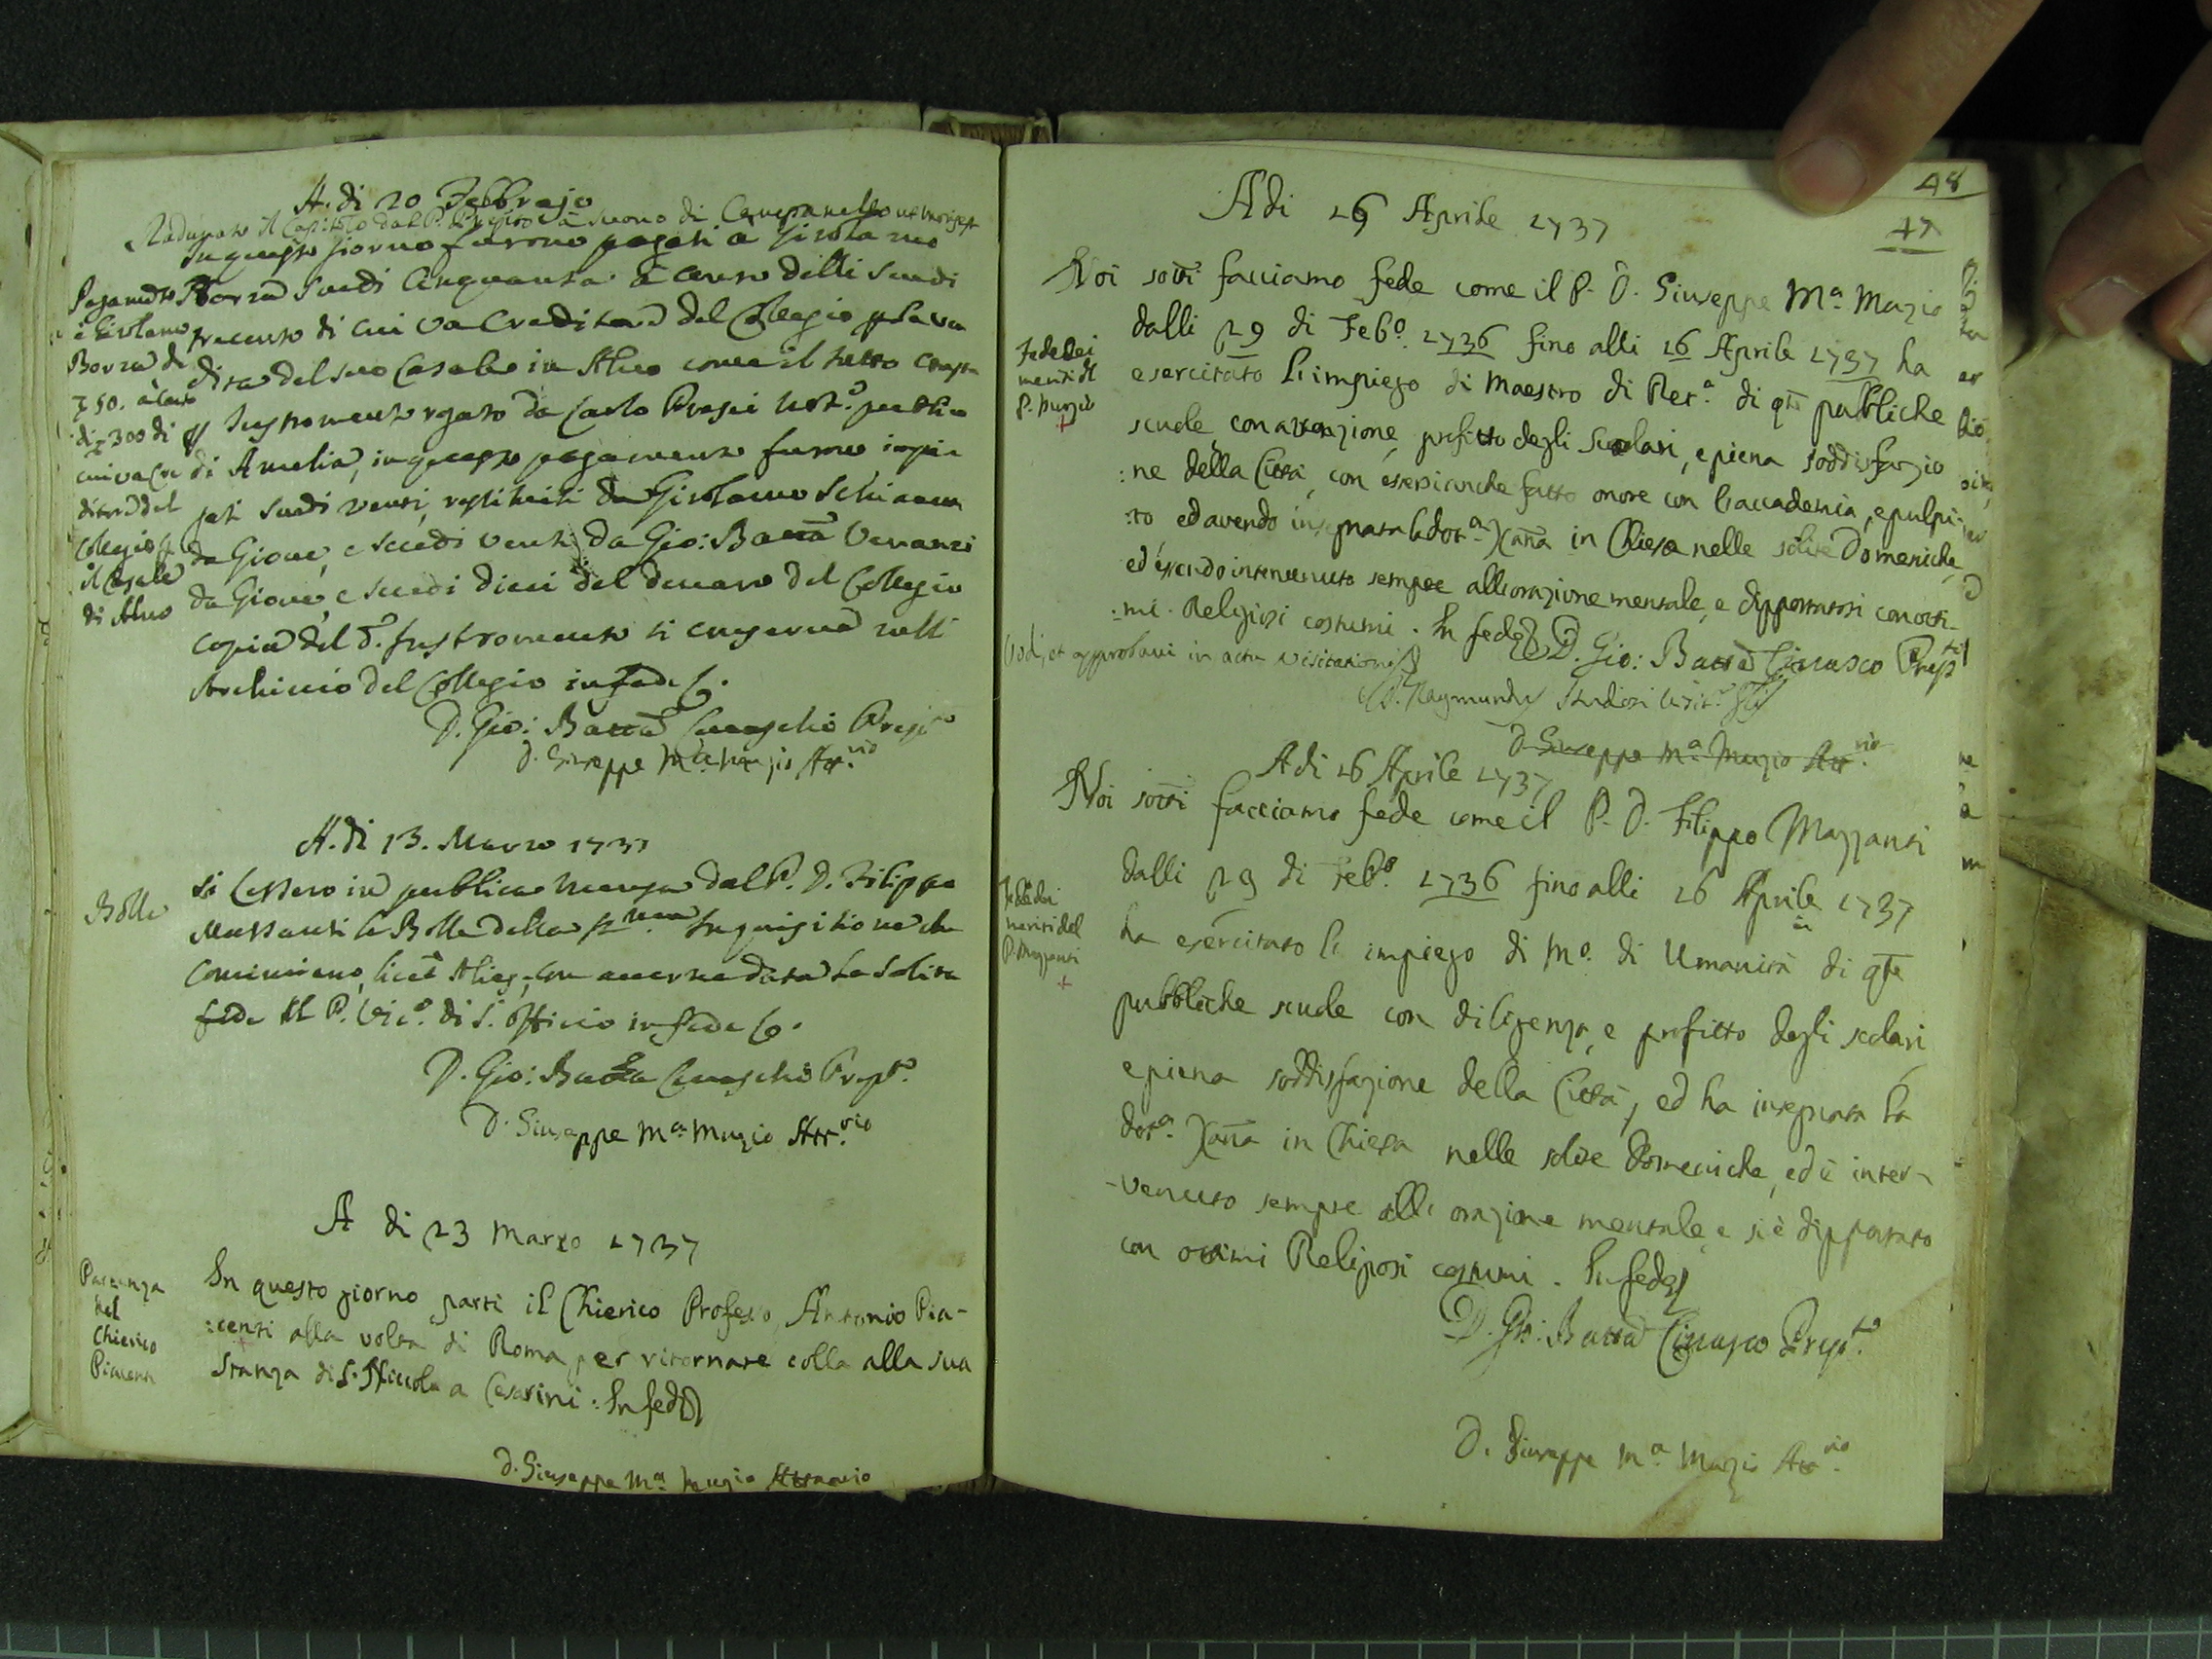 A. di 20 Febbrajo
Radunato il Capitolo dal P. Preposto a suono di Campanello
In questo giorno furono pagati a Girolamo
Borza Scudi Cinquanta a conto delli Scudi
trecento di cui va Creditore del Collegio p la
del suo Casale in Alvo come il tutto
Instromento rogato da Carlo Not.o publico
di Amelia, in questo pagamento furno impie
gati Scudi venti, restituiti da Girolamo
da Giove, e scudi venti da Gio: Batta Venanzi
da Giove, e scudi dieci del denaro del Collegio
copia del d. Instromento si conserva nell'
Archivio del Collegio in fede
D. Gio: Batta Prep.to
D. Giuseppe M.a Muzio Att.rio
Pagamento
a Girolamo
Borza di
50. a conto
di 300 di
cui va Cre
ditore del
Collegio p
il Casale
di Alvo
A. di 13. Marzo 1737
Bolle
Si lessero in publica mensa dal P. D. Filippo
Mazzanti le Bolle della Inquisitione che
cominciano, licet Alias, con averne data la solita
fede al P. Vic.o di S. Officio in fede
D. Gio: Batta Prep.to
D. Giuseppe M.a Muzio Att.rio
A di 23 Marzo 1737
Partenza
del
Chierico
Piacenti
In questo giorno partì il Chierico Professo Antonio Pia-
:centi alla volta di Roma per ritornare colla alla sua
Stanza di S. Niccola a Cesarini. In fede
D. Giuseppe M.a Muzio Attuario
48
47
Adi 16 Aprile 1737
Noi sotti facciamo fede come il P. D. Giuseppe M.a Muzio
dalli 29 di Feb.o 1736 fino alli 16 Aprile 1737 ha
esercitato l'impiego di Maestro di Ret.a di qte pubbliche
scuole con attenzione, profitto degli Scolari, e piena soddisfazio
:ne della Città, con essersi anche fatto onore con l'accademia, e pulpi-
:to ed avendo insegnata la dot.a Xana in Chiesa nelle solite Domeniche,
ed essendo intervenuto sempre all'orazione mentale, e dipportatosi con otti-
:mi Religiosi costumi. In fede D. Gio: Batta Cirasco Prep.to
Fede dei
meriti del
P. Muzio
Vidi, et approbavi in actu visitationis
D. Raymundus Studiosi
D. Giuseppe M.a Muzio Att.rio
Adi 16 Aprile 1737
Noi sotti facciamo fede come il P. D. Filippo Mazzanti
dalli 29 di Feb.o 1736 fino alli 16 Aprile 1737
ha esercitato l'impiego di M.o di Umanità di qte
pubbliche scuole con diligenza, e profitto degli scolari
e piena soddisfazione della Città, ed ha insegnata la
dot.a Xana in Chiesa nelle solite Domeniche, ed è inter-
-venuto sempre all'orazione mentale, e si è dipportato
con ottimi Religiosi costumi. In fede
Fede dei
meriti del
P. Mazzanti
D. Gio: Batta Cirasco Prep.to
D. Giuseppe M.a Muzio Att.rio